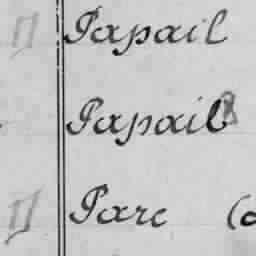 Papail
Papail
Parc (